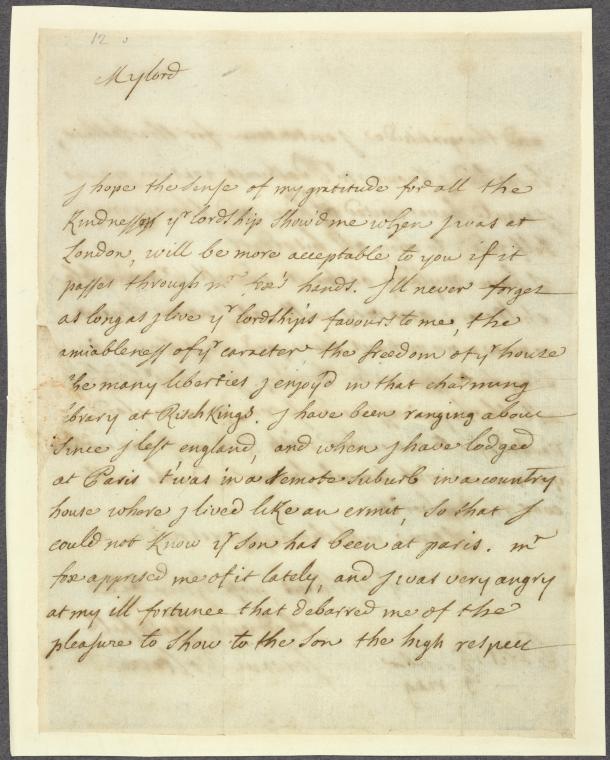 12
My lord
I hope the sense of my gratitude for all the
Kindnesses yr lordship show'd me when I was at
London, will be more acceptable to you if it
passes through mr fox's hands. I'll never forget
as long as I live yr lordship's favours to me, the
amiableness of yr caracter the freedom of yr house
the many liberties I enjoy'd in that charming
ibrary at Rischkings. I have been ranging about
since I left england, and when I have lodged
at Paris t'was in a remote suburb in a country
house where I lived like an ermit, so that I
could not Know yr son has been at paris. mr
fox apprised me of it lately, and I was very angry
at my ill fortune that debarred me of the
pleasure to show to the son the high respect